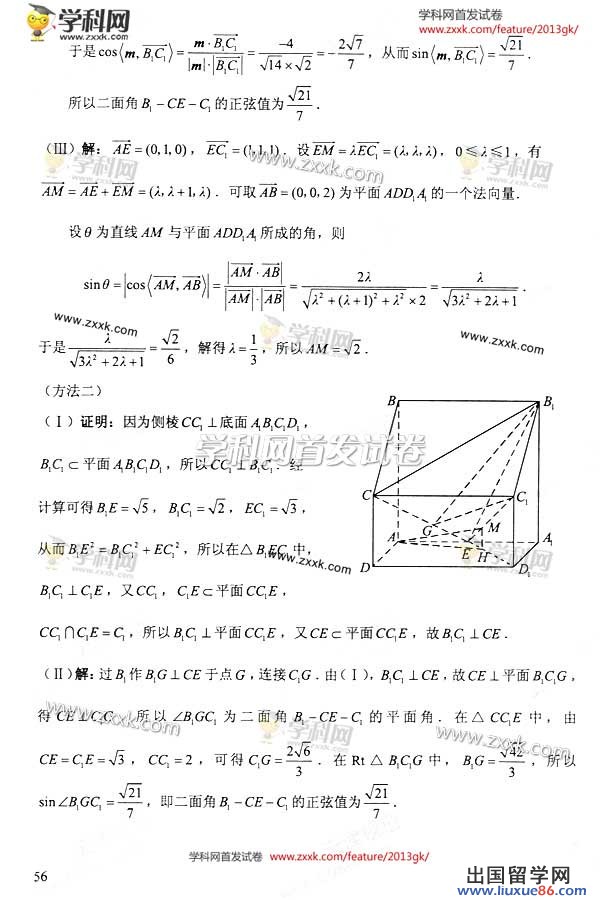 学科网
www.zxxk.com
学科网首发试卷
www.zxxk.com/feature/2013gk/
于是cos⟨m, B₁C₁⟩ = m·B₁C₁ / |m|·|B₁C₁| = −4 / (√14×√2) = −2√7/7，从而sin⟨m, B₁C₁⟩ = √21/7．
所以二面角B₁−CE−C₁的正弦值为√21/7．
（Ⅲ）解：AE=(0,1,0)，EC₁=(1,1,1)．设EM=λEC₁=(λ,λ,λ)，0≤λ≤1，有
AM=AE+EM=(λ,λ+1,λ)．可取AB=(0,0,2)为平面ADD₁A₁的一个法向量．
设θ为直线AM与平面ADD₁A₁所成的角，则
sinθ=|cos⟨AM, AB⟩|=|AM·AB| / |AM|·|AB| = 2λ / (√(λ²+(λ+1)²+λ²)×2) = λ / √(3λ²+2λ+1)．
www.zxxk.com 学科网 www.zxxk.com
于是 λ / √(3λ²+2λ+1) = √2/6，解得λ=1/3，所以AM=√2．
（方法二）
（Ⅰ）证明：因为侧棱CC₁⊥底面A₁B₁C₁D₁，
学科网首发试卷
B₁C₁⊂平面A₁B₁C₁D₁，所以CC₁⊥B₁C₁．经
计算可得B₁E=√5，B₁C₁=√2，EC₁=√3，
从而B₁E²=B₁C₁²+EC₁²，所以在△B₁EC₁中，
学科网 www.zxxk.com
B₁C₁⊥C₁E，又CC₁，C₁E⊂平面CC₁E，
CC₁∩C₁E=C₁，所以B₁C₁⊥平面CC₁E，又CE⊂平面CC₁E，故B₁C₁⊥CE．
B
B₁
C
C₁
G
M
A
A₁
E
H
D
D₁
（Ⅱ）解：过B₁作B₁G⊥CE于点G，连接C₁G．由（Ⅰ），B₁C₁⊥CE，故CE⊥平面B₁C₁G，
得CE⊥C₁G，所以∠B₁GC₁为二面角B₁−CE−C₁的平面角．在△CC₁E中，由
www.zxxk.com 学科网 www.zxxk.com
CE=C₁E=√3，CC₁=2，可得C₁G=2√6/3．在Rt△B₁C₁G中，B₁G=√42/3，所以
sin∠B₁GC₁=√21/7，即二面角B₁−CE−C₁的正弦值为√21/7．
学科网首发试卷 www.zxxk.com/feature/2013gk/
56
出国留学网
www.liuxue86.com